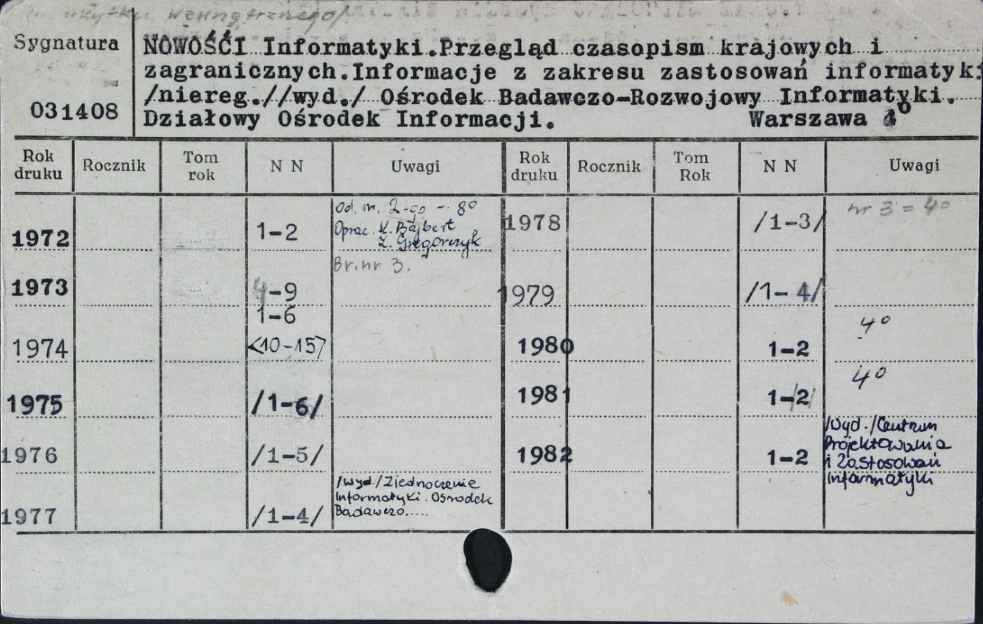 użytku wewnętrznego/
Sygnatura
031408
NOWOŚCI Informatyki.Przegląd czasopism krajowych i
zagranicznych.Informacje z zakresu zastosowań informatyki
/niereg.//wyd./ Ośrodek Badawczo-Rozwojowy Informatyki.
Działowy Ośrodek Informacji. Warszawa
Rok druku Rocznik Tom rok N N Uwagi Rok druku Rocznik Tom Rok N N Uwagi
1972 1-2
Od. nr. 2-go - 8o
Oprac. K. Bajbert
Z. Gregorczyk
Br. nr 3.
1973 4-9
1-6
1974 <10-15>
1975 /1-6/
1976 /1-5/
1977 /1-4/
/Wyd./Zjednoczenie
Informatyki. Ośrodek
Badawczo.....
1978 /1-3/ nr 3 = 4o
1979 /1-4/
1980 1-2 4o
1981 1-2/ 4o
1982 1-2
/Wyd./Centrum
Projektowania
i Zastosowań
Informatyki